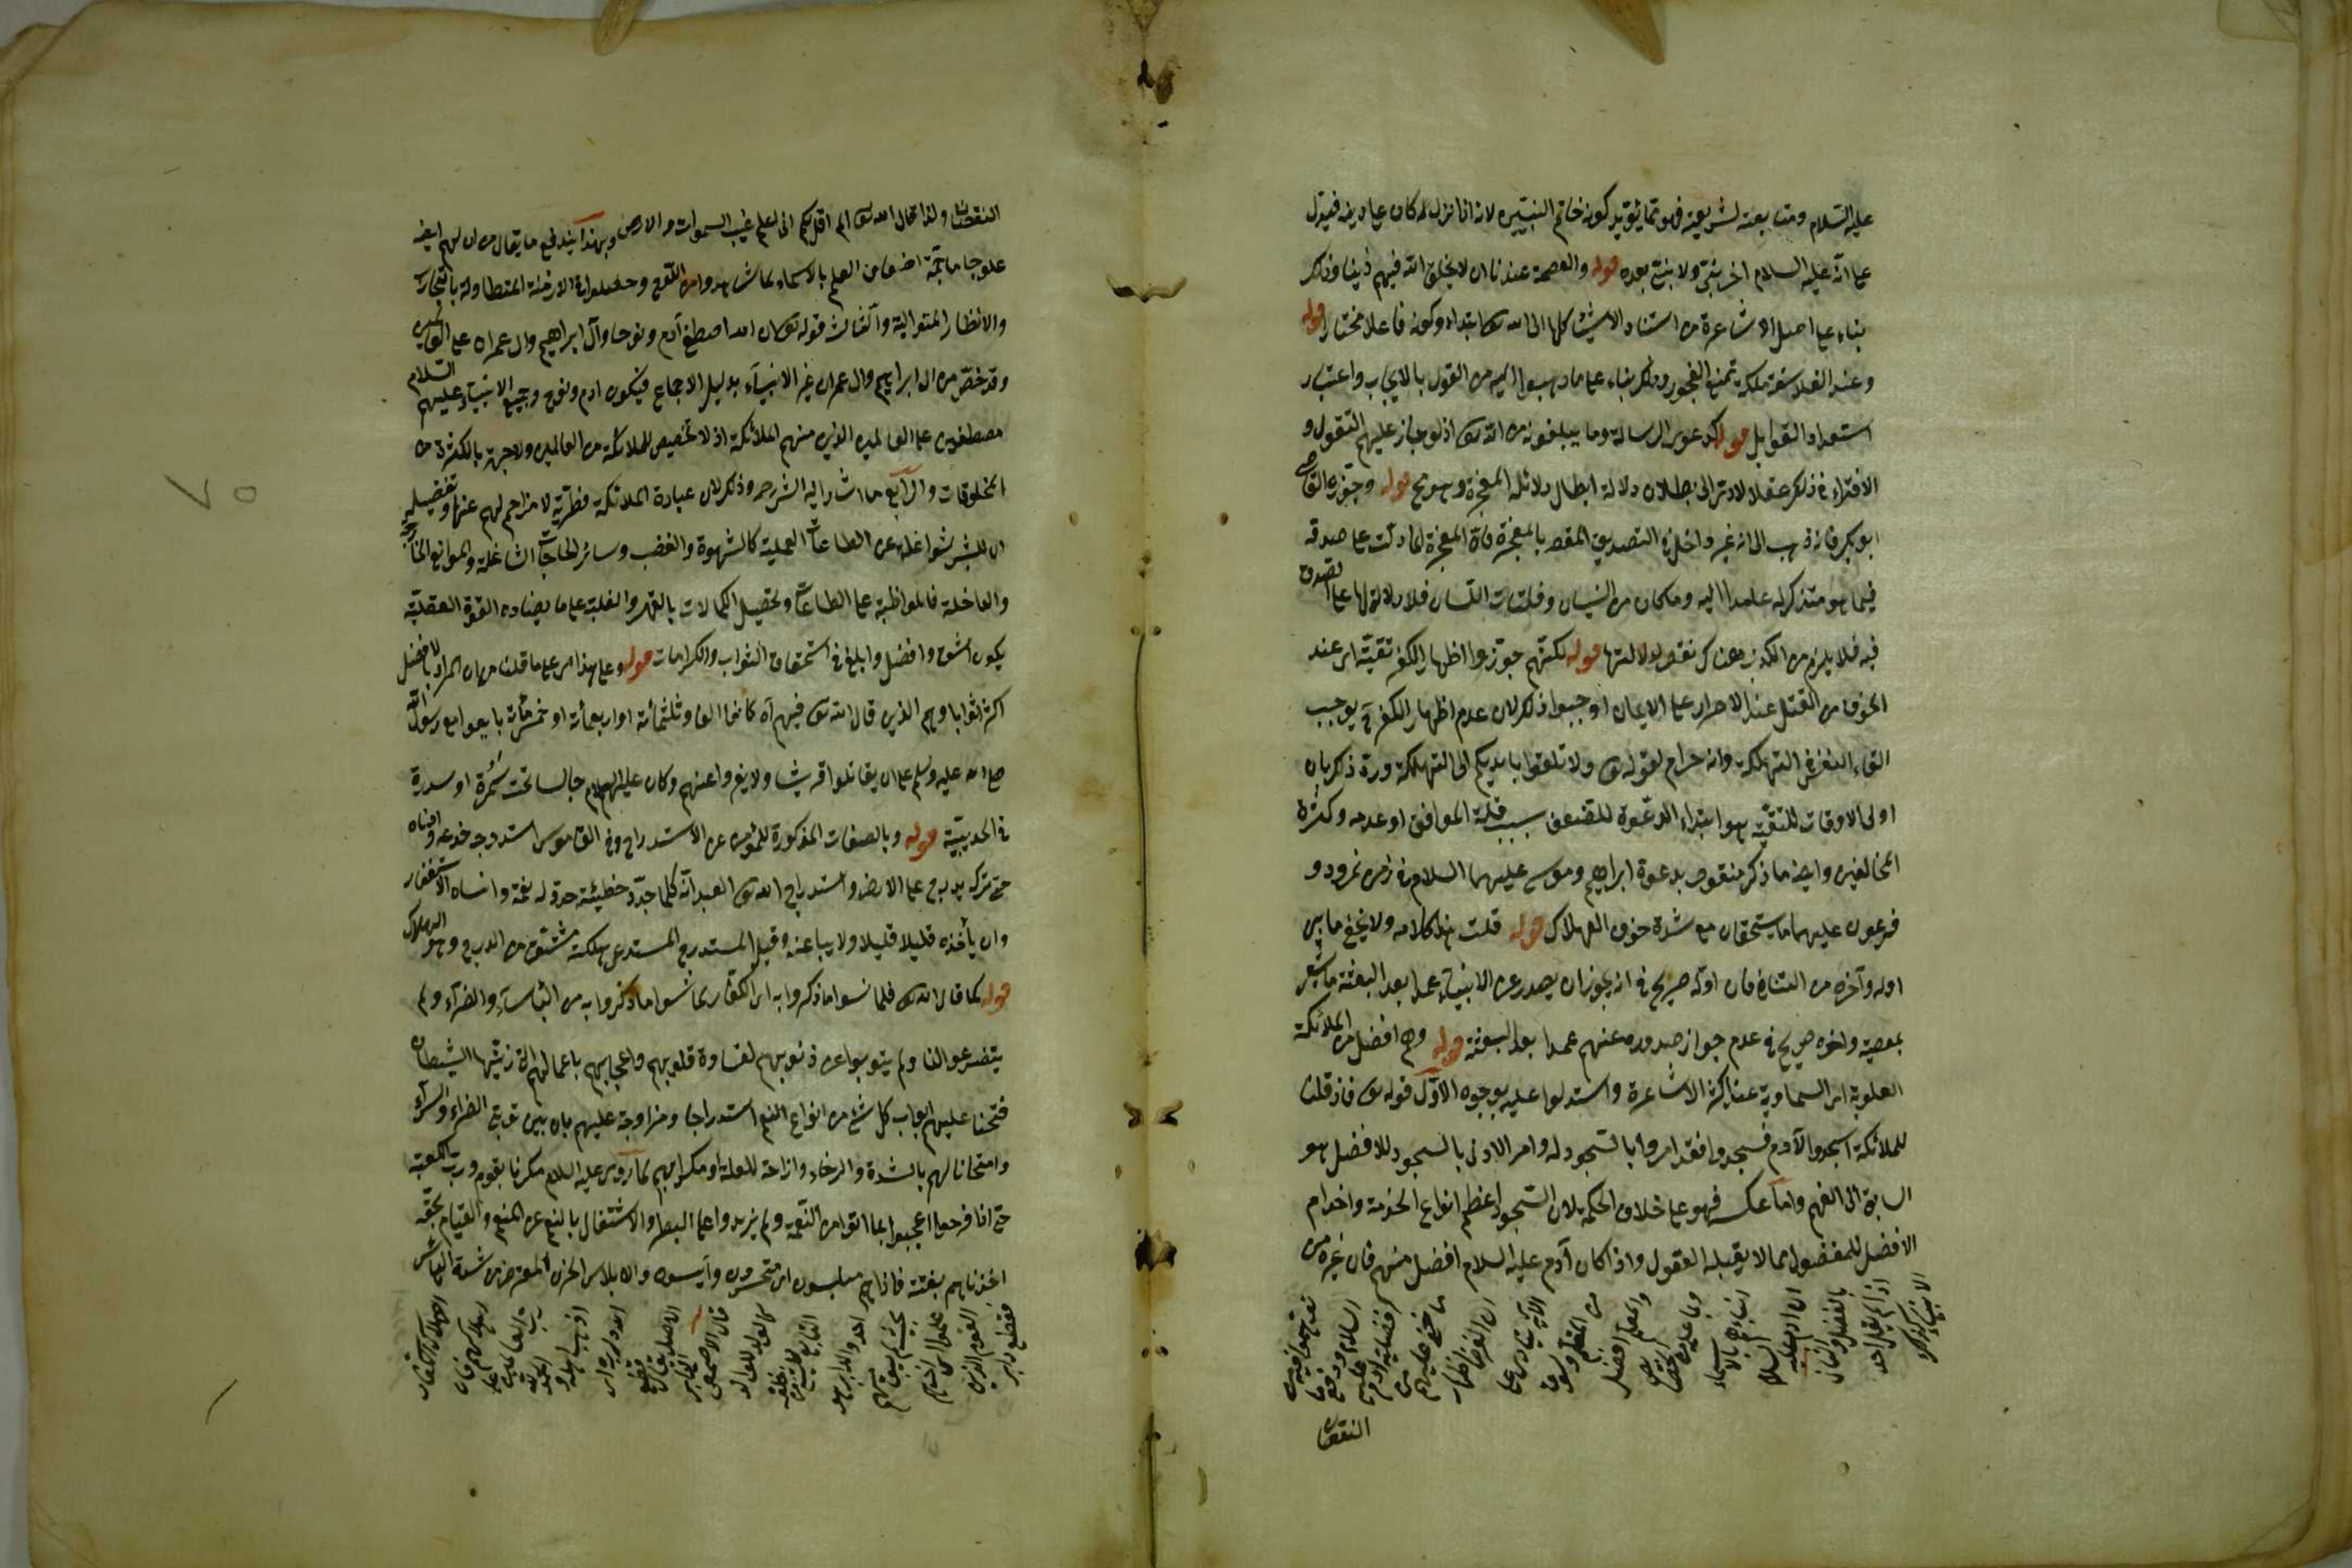 عليه السلام ومتابعته لشريعته فهو مما يؤيد كونه خاتم النبيين لانه اذا نزل كان على دينه فيدل
على انه عليه السلام اخر نبي ولا نبي بعده قوله والعصمة عندنا ان لا يخلق الله فيهم ذنبا وذلك
بناء على اصل الاشاعرة من استناد الاشياء كلها الى الله تعالى ابتداء وكونه فاعلا مختارا قوله
وعند الفلاسفة ملكة تمنع الفجور وذلك بناء على ما ذهبوا اليه من القول بالايجاب واعتبار
استعداد القوابل قوله كدعوى الرسالة وما يبلغونه من الله تعالى اذ لو جاز عليهم التقول و
الافتراء في ذلك عقلا لادى الى بطلان دلالة ابطال دلالة المعجزة وهو مح قوله وجوزه القاضي
ابو بكر فانه ذهب الى انه غير داخل في التصديق المقصود بالمعجزة فان المعجزة انما دلت على صدقه
فيما هو متذكر له عامدا اليه وما كان من النسيان وفلتات اللسان فلا دلالة لها على الصدق
فيه فلا يلزم من الكذب هناك نقض لدلالتها قوله لكنهم جوزوا اظهار الكفر تقية اى عند
الخوف من القتل عند الاصرار على الايمان اوجبوا ذلك لان عدم اظهار الكفر يوجب
القاء النفس في التهلكة وانه حرام لقوله تعالى ولا تلقوا بايديكم الى التهلكة ورد ذلك بان
اولى الاوقات للتقية هو ابتداء الدعوة للضعف بسبب قلة الموافق او عدمه وكثرة
المخالفين وايضا ما ذكر منقوض بدعوة ابراهيم وموسى عليهما السلام في زمن نمرود و
فرعون عليهما ما يستحقان مع شدة خوف الهلاك قوله قلت هذا كلامه ولا يخفى ما بين
اوله وآخره من التنافي فان اوله صريح في انه يجوز ان يصدر عن الانبياء عمدا بعد البعثة ما يشعر
بمعصية واخره صريح في عدم جواز صدوره عنهم عمدا بعد البعثة قوله وهم افضل من الملائكة
العلوية اى السماوية عند اكثر الاشاعرة واستدلوا عليه بوجوه الاول قوله تعالى فاذ قلنا
للملائكة اسجدوا لآدم فسجدوا فقد امروا بالسجود له وامر الادنى بالسجود للافضل هو
السابق الى الفهم واما عكسه فهو على خلاف الحكمة لان السجود اعظم انواع الخدمة واخدام
الافضل للمفضول مما لا يقبله العقول واذا كان آدم عليه السلام افضل منهم فان غيره من
الانبياء كذلك
اذ لم يقل احد
بالفضل والثانى
ان ادم عليه
السلام
انباءهم بالاسماء
وما علمه الله
والمعلم افضل
من المتعلم وسوق
الآية ينادى على
ان الغرض اظهار
ما خفى عليهم من
فضيلة ادم عليه
السلام ودفع ما
النقصان
النقصان ولذا قال الله تعالى الم اقل لكم انى اعلم غيب السموات والارض وبهذا يندفع ما يقال من ان لهم ايضا
علوما جمة اضعاف العلم بالاسماء لما شاهدوا من اللوح وحصلوا في الازمنة المتطاولة بالتجارب
والانظار المتوالية والثالث قوله تعالى ان الله اصطفى آدم ونوحا وآل ابراهيم وال عمران على العالمين
وقد خص من ال ابراهيم وال عمران غير الانبياء بدليل الاجماع فيكون ادم ونوح وجميع الانبياء عليهم السلام
مصطفين على العالمين الذين منهم الملائكة اذ لا تخصيص للملائكة من العالمين ولا جهة بالكثرة من
المخلوقات والرابع ما اشار اليه الشرح وذلك لان عبادة الملائكة فطرية لا مزاحم لهم عنها وتفصيله
ان للبشر شواغل عن الطاعات العملية كالشهوة والغضب وسائر الحاجات الشاغلة والموانع الخارجة
والداخلة فالمواظبة على الطاعات وتحصيل الكمالات بالقهر والغلبة على ما يضاده القوة العقلية
يكون اشق وافضل وابلغ في استحقاق الثواب والكرامات قوله وعلى هذا اى على ما قلنا من ان المراد بالافضل
اكثر ثوابا وهم الذين قال الله تعالى فيهم انه كانوا الفا وثلثمائة او اربعمائة او خمسمائة بايعوا مع رسول الله
صلى الله عليه وسلم على ان يقاتلوا قريشا ولا يفروا عنهم وكان عليه السلام جالسا تحت سمرة او سدرة
في الحديبية قوله وبالصفات المذكورة للمؤمن عن الاستدراج وفي القاموس استدرجه خدعه وادناه
حتى تركه يدرج على الارض واستدراج الله تعالى العبد انه كلما جدد خطيئة جدد له نعمة وانساه الاستغفار
وان يأخذه قليلا قليلا ولا يباغته وقيل المستدرج المستدعى هلكته مشتق من الدرج وهو الهلاك
قوله كما قال الله تعالى فلما نسوا ما ذكروا به اى الكفار لما نسوا ما ذكروا به من البأساء والضراء ولم
يتضرعوا لنا ولم يتوبوا عن ذنوبهم لقساوة قلوبهم واعجابهم باعمالهم التى زينها الشيطان
فتحنا عليهم ابواب كل شئ من انواع النعم استدراجا ومزاوجة عليهم بان بين نوبتى الضراء والسراء
وامتحانا لهم بالشدة والرخاء وازاحة للعلة او مكرا بهم لما روى عليه السلام مكرنا بقوم ورب الكعبة
حتى اذا فرحوا اعجبوا بما اوتوا من النعمة ولم يزيدوا على البطر والاشتغال بالنعم عن المنعم والقيام بحقه
اخذناهم بغتة فاذا هم مبلسون اى متحسرون وآيسون والابلاس الحزن المعترض من شدة اليأس
فقطع دابر
القوم الذين
ظلموا اى اخذهم
بحيث لم يبق منهم
احد والدابر هو
التابع للشئ من خلفه
كالولد للوالد
قال الاصمعى
الاصل يقال قطع
الله دابره اى
اذهب اصله و
الحمد لله
رب العالمين على
اهلاكهم فان
اهلاك الكفار